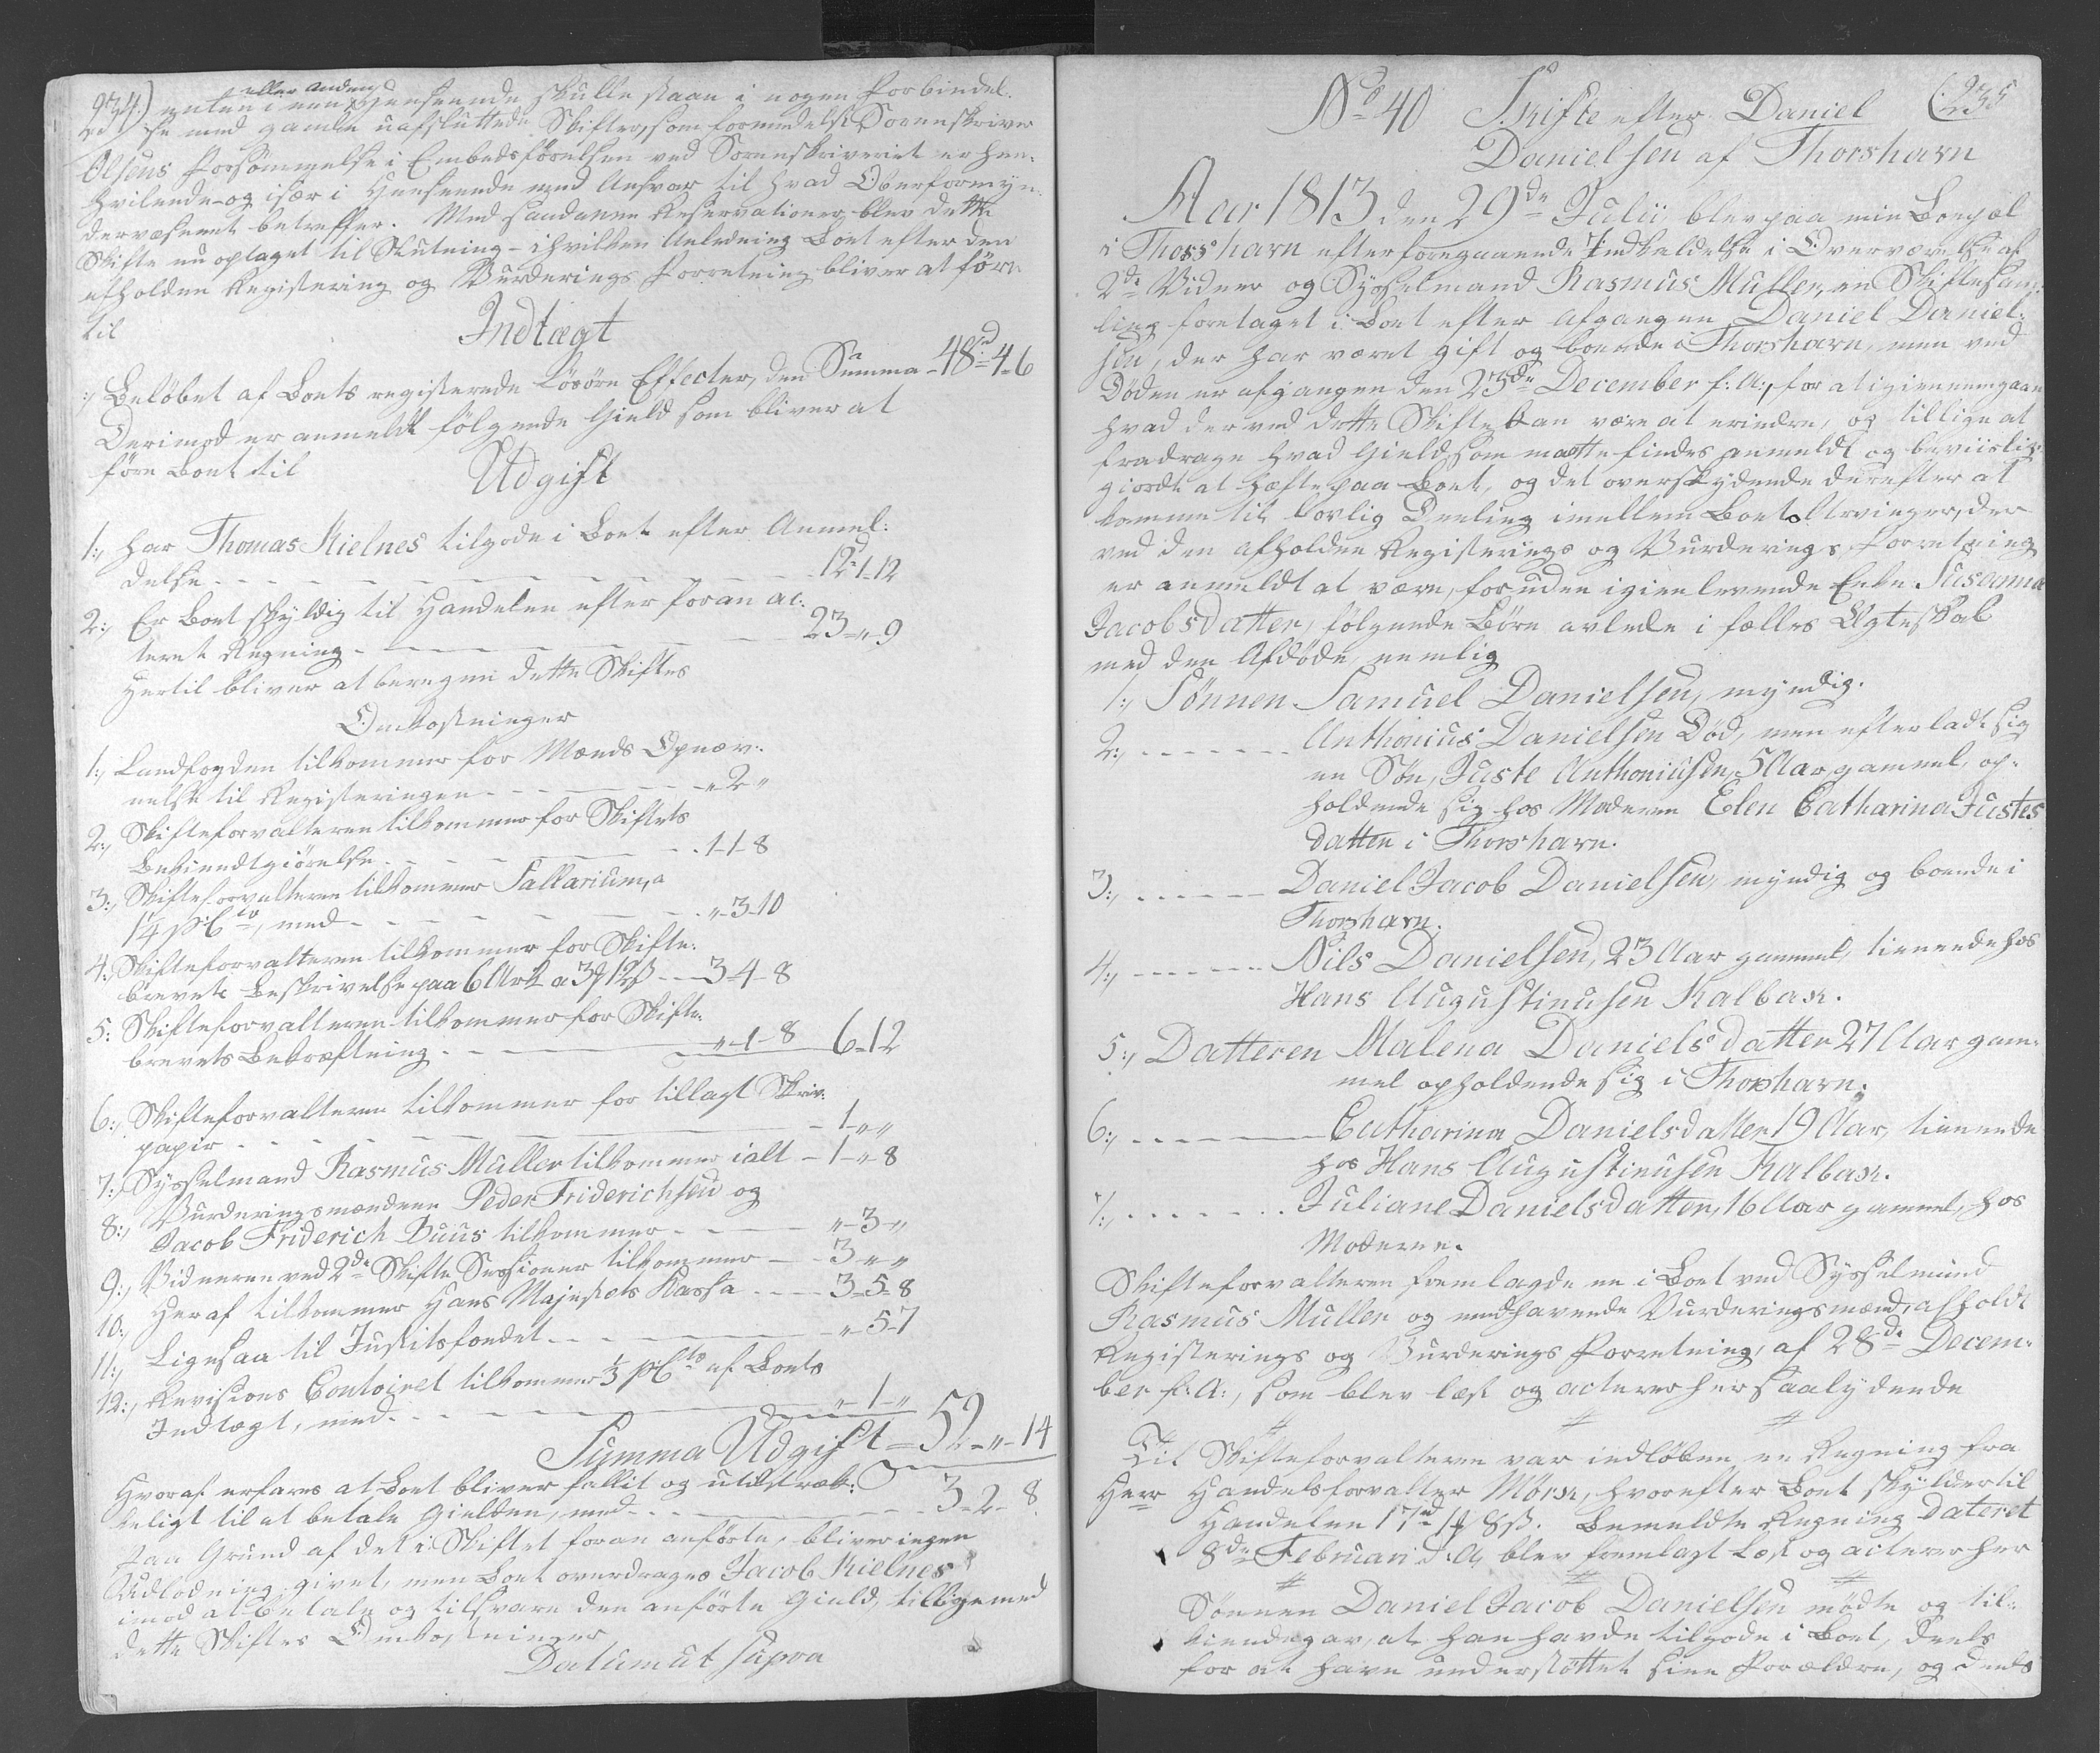 234.) enten i een eller anden Henseende skulle staae i nogen Forbindel-
se med gamle uafsluttede Skifter, som formedelst Sorenskriver
Olsens Forsömmelse i Embedsförelsen ved Sorenskriveriet er hen-
hvilende og især i Henseende med Ansvar til hvad Oberformyn-
dervæsenet betreffer. Med saadanne Reservationer blev dette
Skifte nu optaget til Slutning - i hvilken Anledning Boet efter den
afholdne Registering og Vurderings Forretning bliver at före
til
Indtægt
Belöbet af Boets registerede Lösöre Effecter, den Summa - 48 rd - 4 - 6
Derimod er anmeldt fölgende Gield som bliver at
före Boet til
Udgift
1:, har Thomas Kielnes tilgode i Boet efter Anmel-
delse - - - 12 rd - 1 - 12
2:, Er Boet skyldig til Handelen efter foran ac-
teret Regning - - - 23 - " - 9
Hertil bliver at beregne dette Skiftes
Omkostninger
1:, Landfogden tilkommer for Mænds Opnæv-
nelse til Registeringen - - - " 2 "
2:, Skifteforvalteren tilkommer for Skiftets
Bekiendtgiörelse - - - 1 - 1 - 8
3:, Skifteforvalteren tilkommer Sallarium, a
1¼ p Cto, med - - - " - 3 - 10
4:, Skifteforvalteren tilkommer for Skifte-
brevets Beskrivelse paa 6 Ark a 3 ₰ 12 ß - - 3 - 4 - 8
5: Skifteforvalteren tilkommer for Skifte-
brevets Bekræftning - - - " - 1 - 8 6 - 12
6:, Skifteforvalteren tilkommer for tillagt Skriv-
papir - - - 1 - " - "
7:, Sysselmand Rasmus Müller tilkommer ialt - 1 - " - 8
8:, Vurderingsmændene Peder Friderichsen og
Jacob Friderich Duus tilkommer - - - " - 3 - "
9:, Vidnerne ved 2de Skifte Sessioner tilkommer - - 3 - " - "
10:, Heraf tilkommer Hans Majestets Kassa - - - 3 - 5 - 8
11:, Ligesaa til Justitsfondet - - - " - 5 - 7
12:, Revisions Contoiret tilkommer ⅓ p Cto af Boets
Indtægt, med - - - " - 1 - "
Summa Udgift - 52 - " - 14
Hvoraf erfares at Boet bliver fallit og utilstræk-
keligt til at betale Gielden, med - - - 3 - 2 - 8
Paa Grund af det i Skiftet foran anförte, bliver ingen
Udlodning givet, men Boet overdrages Jacob Kielnes
imod at betale og tilsvare den anförte Gield, tilligemed
dette Skiftes Omkostninger
Datum ut supra
No 40 Skifte efter Daniel (235
Danielsen af Thorshavn
Aar 1813 den 29de Julii blev paa min Boepæl
i Thorshavn efter foregaaende Indkaldelse i Overværelse af
2de Vidner og Sysselmand Rasmus Müller, en Skiftesam-
ling foretaget i Boet efter afgangen Daniel Daniel-
sen, der har været gift og boende i Thorshavn, men ved
Döden er afgangen den 23de December f: A:, for at igiennemgaae
hvad der ved dette Skifte kan være at erindre, og tillige at
fradrage hvad Gield som maatte findes anmeldt og beviislig-
giordt at hæfte paa Boet, og det overskydende derefter at
komme til lovlig Deeling imellem Boets Arvinger, der
ved den afholdne Registerings og Vurderings Forretning
er anmeldt at være, foruden igienlevende Enke Susanna
Jacobsdatter, fölgende Börn avlede i fælles Ægteskab
med den Afdöde, nemlig
1:, Sönnen Samuel Danielsen, myndig.
2:, - - - Anthonius Danielsen Död, men efterladt sig
en Sön, Juste Anthoniusen, 5 Aar gammel, op-
holdende sig hos Moderen Elen Catharina Justes
datter i Thorshavn.
3:, - - - Daniel Jacob Danielsen, myndig og boende i
Thorshavn.
4:, - - - Nils Danielsen, 23 Aar gammel, tienende hos
Hans Augustinusen Kalbak.
5:, Datteren Malena Danielsdatter 27 Aar gam-
mel opholdende sig i Thorshavn.
6:, - - - Catharina Danielsdatter 19 Aar, tienende
hos Hans Augustinusen Kalbak.
7:, - - - Juliane Danielsdatter, 16 Aar gammel, hos
Moderen.
Skifteforvalteren fremlagde en i Boet ved Sysselmand
Rasmus Müller og medhavende Vurderingsmænd, afholdt
Registerings og Vurderings Forretning, af 28de Decem-
ber f: A:, som blev læst og acteres her saalydende
# # #
Til Skifteforvalteren var indlöben en Regning fra
Herr Handelsforvalter Mörk, hvorefter Boet skylder til
Handelen 17 rd 1 ₰ 8 ß. Bemeldte Regning dateret
8de Februari d: A, blev fremlagt læst og acteres her
# # #
Sönnen Daniel Jacob Danielsen mödte og til-
kiendegav, at han havde tilgode i Boet, deels
for at have understöttet sine Forældre, og deels